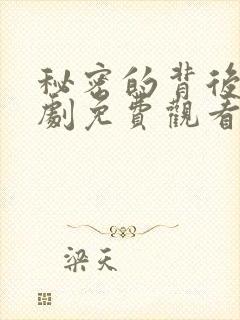 秘密的背後
劇免費觀看
梁天